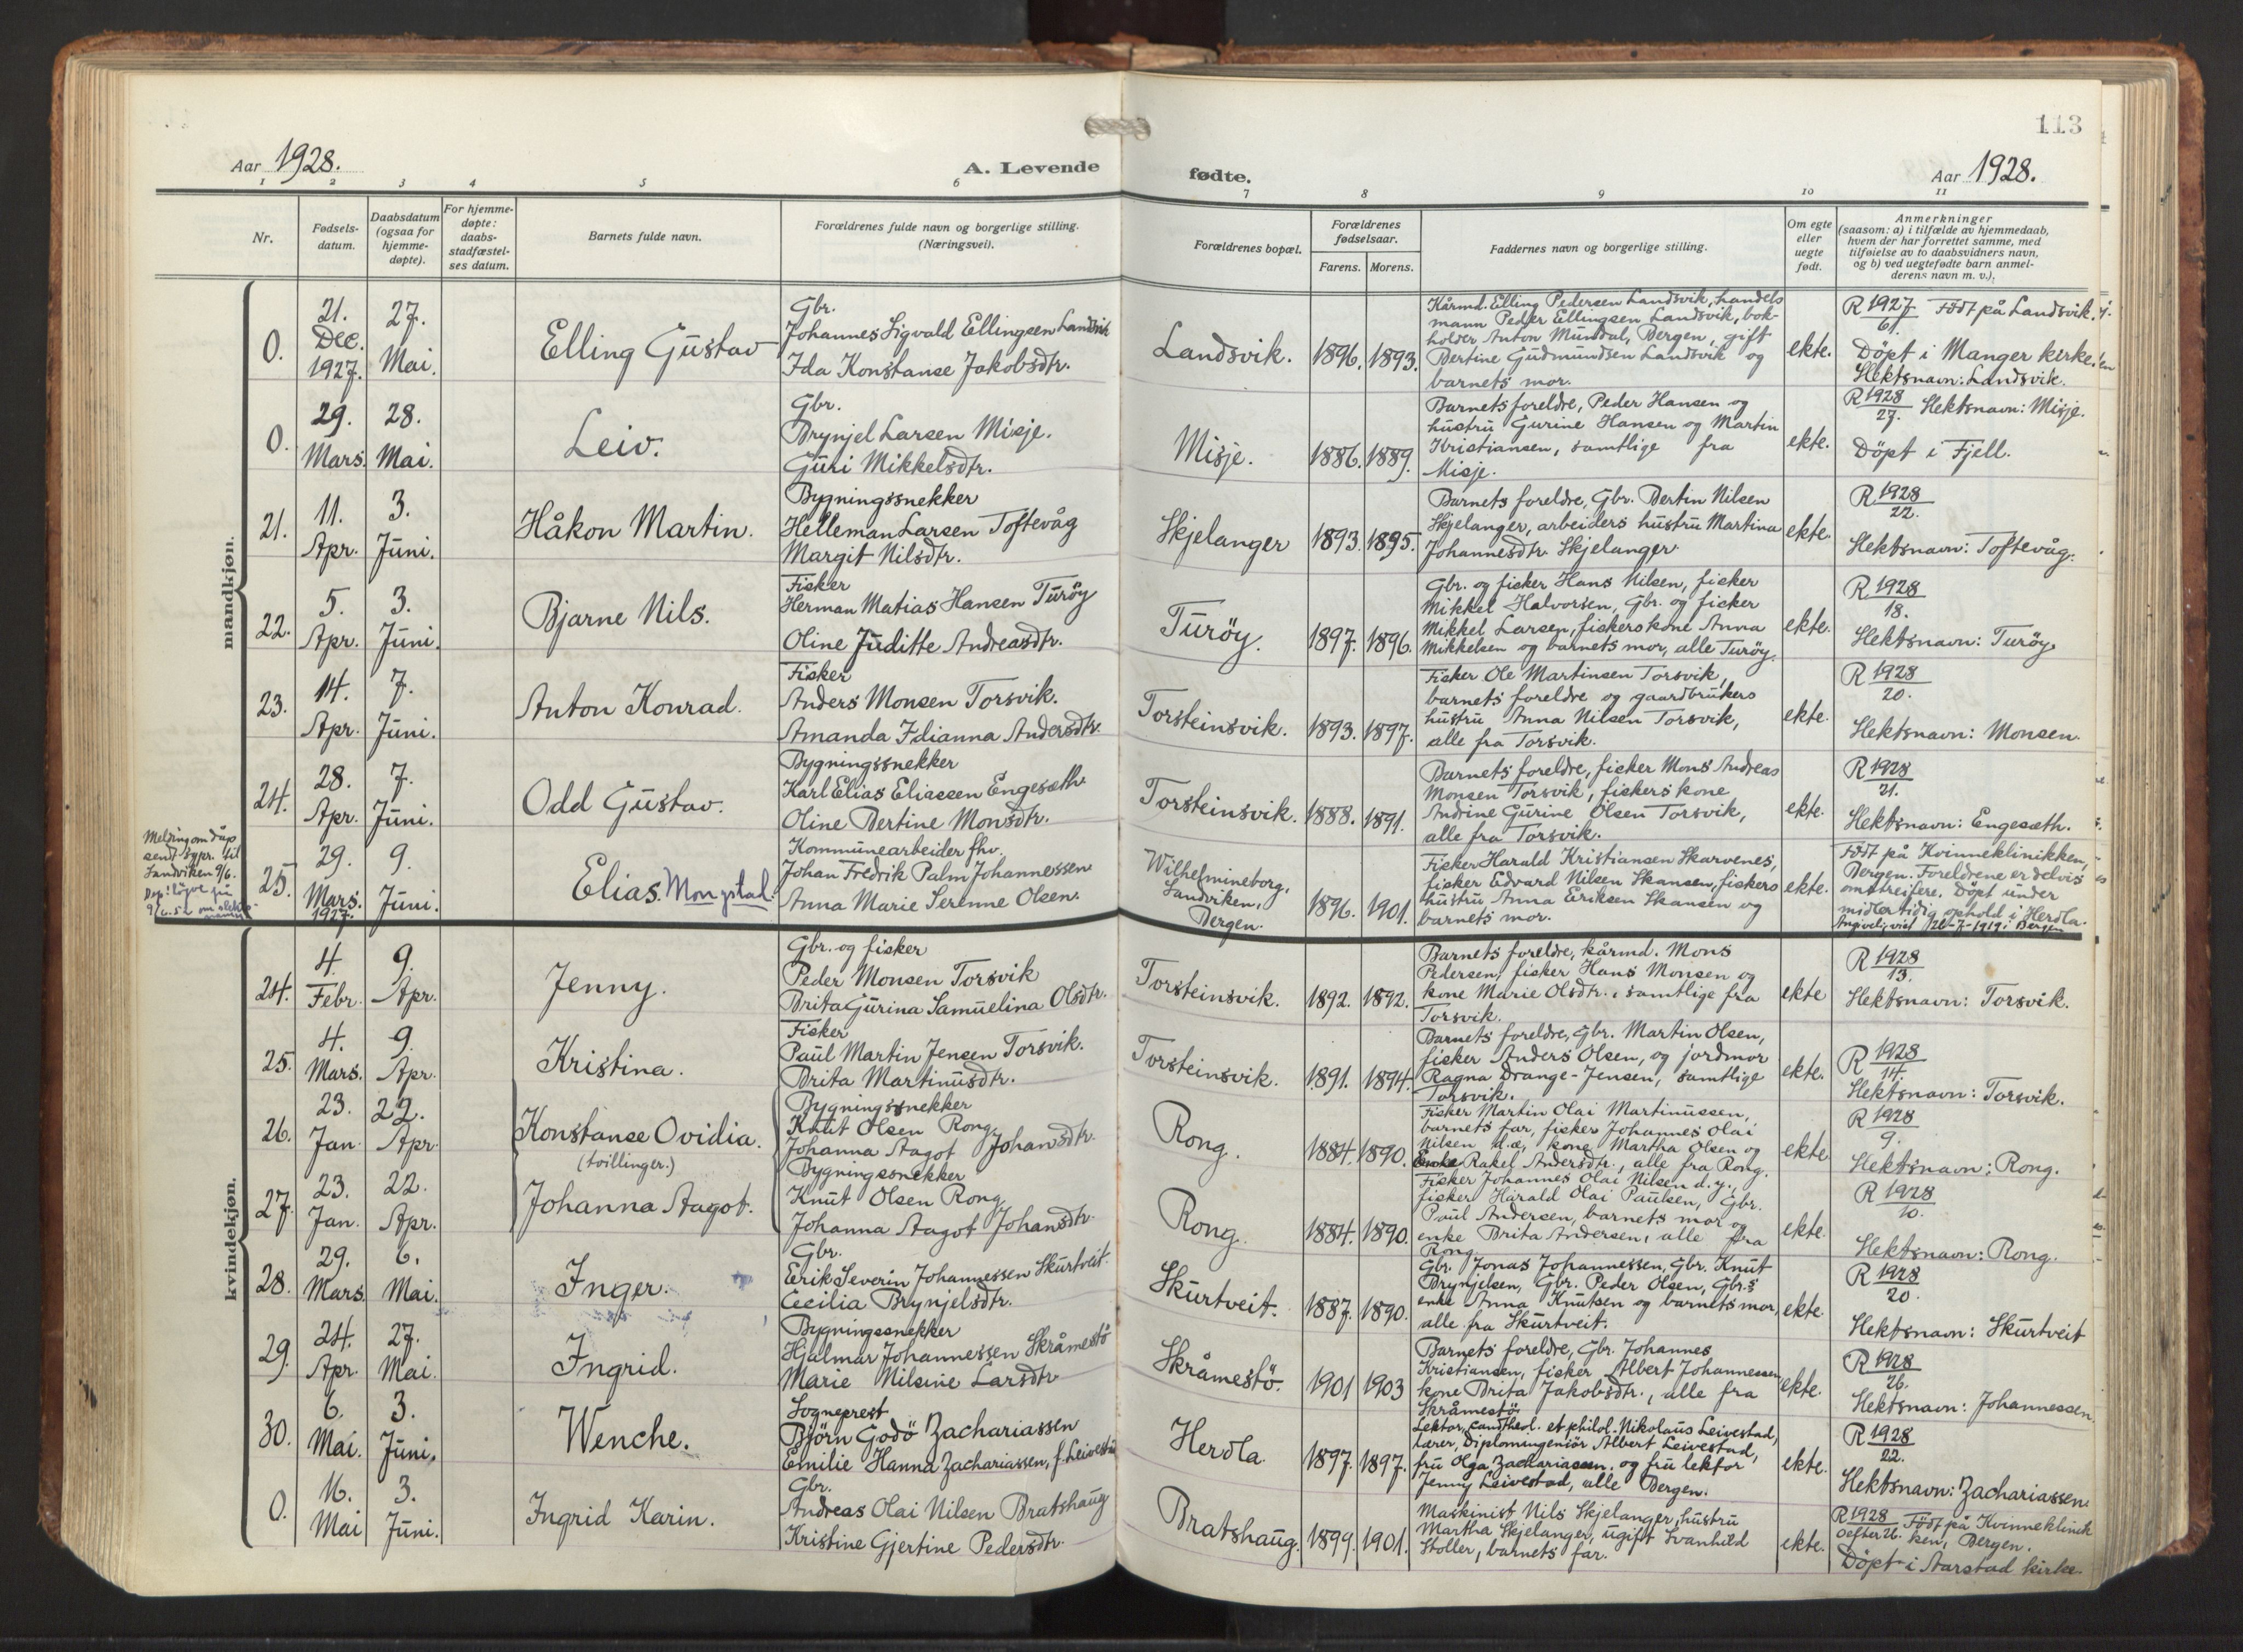 113
Aar 1928.
A. Levende
fødte.
Aar 1928.
1 2 3 4 5 6 7 8 9 10 11
Nr.
Fødsels-
datum.
Daabsdatum
(ogsaa for
hjemme-
døpte).
For hjemme-
døpte:
daabs-
stadfæstel-
ses datum.
Barnets fulde navn.
Forældrenes fulde navn og borgerlige stilling.
(Næringsvei).
Forældrenes bopæl.
Forældrenes
fødselsaar.
Farens. Morens.
Faddernes navn og borgerlige stilling.
Om egte
eller
uegte
født.
Anmerkninger
(saasom: a) i tilfælde av hjemmedaab,
hvem der har forrettet samme, med
tilføielse av to daabsvidners navn,
og b) ved uegtefødte barn anmel-
derens navn m. v.).
mandkjøn.
0.
21.
Dec.
1927.
27.
Mai.
Elling Gustav
Gbr.
Johannes Sigvald Ellingsen Landsvik
Ida Konstanse Jakobsdtr.
Landsvik.
1896. 1893.
Kårmd. Elling Pedersen Landsvik, handels
mann Peder Ellingsen Landsvik, bok-
holder Anton Mundal, Bergen, gift
Bertine Gudmundsen Landsvik og
barnets mor.
ekte.
R 1927 Født på Landsvik.
61.
Döpt i Manger kirke.
Slektsnavn: Landsvik.
0.
29.
Mars.
28.
Mai.
Leiv.
Gbr.
Brynjel Larsen Misje.
Guri Mikkelsdtr.
Misje.
1886. 1889.
Barnets foreldre, Peder Hansen og
hustru Gurine Hansen og Martin
Kristiansen, samtlige fra
Misje.
ekte.
R 1928 Slektsnavn: Misje.
27.
Döpt i Fjell.
21.
11.
Apr.
3.
Juni.
Håkon Martin.
Bygningssnekker
Helleman Larsen Toftevåg
Margit Nilsdtr.
Skjelanger
1893. 1895.
Barnets foreldre, Gbr. Bertin Nilsen
Skjelanger, arbeiders hustru Martina
Johannesdtr. Skjelanger.
ekte.
R 1928
22.
Slektsnavn: Toftevåg.
22.
5.
Apr.
3.
Juni.
Bjarne Nils.
Fisker
Herman Matias Hansen Turöy
Oline Juditte Andreasdtr.
Turöy.
1897. 1896.
Gbr. og fisker Hans Nilsen, fisker
Mikkel Halvorsen, Gbr. og fisker
Mikkel Larsen, fiskers kone Anna
Mikkelsen og barnets mor, alle Turöy.
ekte.
R 1928
18.
Slektsnavn: Turöy.
23.
14.
Apr.
7.
Juni.
Anton Konrad.
Fisker
Anders Monsen Torsvik.
Amanda Idianna Andersdtr.
Torsteinsvik.
1893. 1897.
Fisker Ole Martinsen Torsvik,
barnets foreldre og gaardbrukers
hustru Anna Nilsen Torsvik,
alle fra Torsvik.
ekte.
R 1928
20.
Slektsnavn: Monsen.
24.
28.
Apr.
7.
Juni.
Odd Gustav.
Bygningssnekker
Karl Elias Eliassen Engesæth
Oline Bertine Monsdtr.
Torsteinsvik.
1888. 1891.
Barnets foreldre, fisker Mons Andreas
Monsen Torsvik, fiskers kone
Andrine Gurine Olsen Torsvik,
alle fra Torsvik.
ekte.
R 1928
21.
Slektsnavn: Engesæth.
Melding om dåp
sendt sypr. til
Sandviken 9/6.
25.
29.
Mars.
1927.
9.
Juni.
Elias. Mongstad.
Kommunearbeider fhv.
Johan Fredrik Palm Johannessen
Anna Marie Serenne Olsen.
Wilhelmineborg,
Sandviken,
Bergen.
1896. 1901.
Fisker Harald Kristiansen Skarvenes,
fisker Edvard Nilsen Skansen, fiskers
hustru Anna Eriksen Skansen og
barnets mor.
ekte.
Født på Kvinneklinikken,
Bergen. Foreldrene er delvis
omstreifere. Döpt under
midlertidig ophold i Herdla.
Angivelig viet 12-7-1919 i Bergen
kvindekjøn.
24.
4.
Febr.
9.
Apr.
Jenny.
Gbr. og fisker
Peder Monsen Torsvik
Brita Gurina Samuelina Olsdtr.
Torsteinsvik.
1892. 1892.
Barnets foreldre, kårmd. Mons
Pedersen, fisker Hans Monsen og
kone Marie Olsdtr., samtlige fra
Torsvik.
ekte
R 1928
13.
Slektsnavn: Torsvik.
25.
4.
Mars.
9.
Apr.
Kristina.
Fisker
Paul Martin Jensen Torsvik.
Brita Martinusdtr.
Torsteinsvik.
1891. 1894.
Barnets foreldre, Gbr. Martin Olsen,
fisker Anders Olsen, og jordmor
Ragna Drange-Jensen, samtlige
Torsvik.
ekte.
R 1928
14.
Slektsnavn: Torsvik.
26.
23.
Jan
22.
Apr.
Konstanse Ovidia.
(tvillinger.)
Bygningssnekker
Knut Olsen Rong
Johanna Aagot Johansdtr.
Rong.
1884. 1890.
Fisker Martin Olai Martinussen,
barnets far, fisker Johannes Olai
Nilsen d.æ., kone Martha Olsen og
Enke Rakel Andersdtr., alle fra Rong.
ekte
R 1928
9.
Slektsnavn: Rong.
27.
23.
Jan.
22.
Apr.
Johanna Aagot.
Bygningssnekker
Knut Olsen Rong
Johanna Aagot Johansdtr.
Rong.
1884. 1890.
Fisker Johannes Olai Nilsen d.y.,
fisker Harald Olai Paulsen, Gbr.
Paul Andersen, barnets mor og
enke Brita Andersen, alle fra
Rong.
ekte.
R 1928
10.
Slektsnavn: Rong.
28.
29.
Mars.
6.
Mai.
Inger.
Gbr.
Erik Severin Johannessen Skurtveit.
Cecilia Brynjelsdtr.
Skurtveit.
1887. 1890.
Gbr. Jonas Johannessen, Gbr. Knut
Brynjelsen, Gbr. Peder Olsen, Gbr.s
enke Anna Knutsen og barnets mor,
alle fra Skurtveit.
ekte.
R 1928
20.
Slektsnavn: Skurtveit
29.
24.
Apr.
27.
Mai.
Ingrid.
Bygningssnekker
Hjalmar Johannessen Skråmestö
Marie Nilsine Larsdtr
Skråmestö.
1901 1903
Barnets foreldre, Gbr. Johannes
Kristiansen, fisker Albert Johannessen
kone Brita Jakobsdtr., alle fra
Skråmestö.
ekte.
R 1928
26.
Slektsnavn: Johannessen.
30.
6.
Mai.
3.
Juni.
Wenche.
Sogneprest
Björn Godö Zachariassen
Emilie Hanna Zachariassen, f. Leivestad
Herdla.
1897. 1897.
Lektor, cand. theol. et philol. Nikolaus Leivestad,
lærer, Diplomingeniör Albert Leivestad,
fru Olga Zachariassen, og fru lektor
Jenny Leivestad, alle Bergen.
ekte.
R 1928
22.
Slektsnavn: Zachariassen.
0.
16.
Mai
3.
Juni.
Ingrid Karin.
Gbr.
Andreas Olai Nilsen Bratshaug
Kristine Gjertine Pedersdtr.
Bratshaug.
1899. 1901.
Maskinist Nils Skjelanger, hustru
Martha Skjelanger, ugift Svanhild
Stoller, barnets far.
ekte.
R 1928 Født på Kvinneklinik
0 efter 26. ken, Bergen.
Döpt i Aarstad kirke.